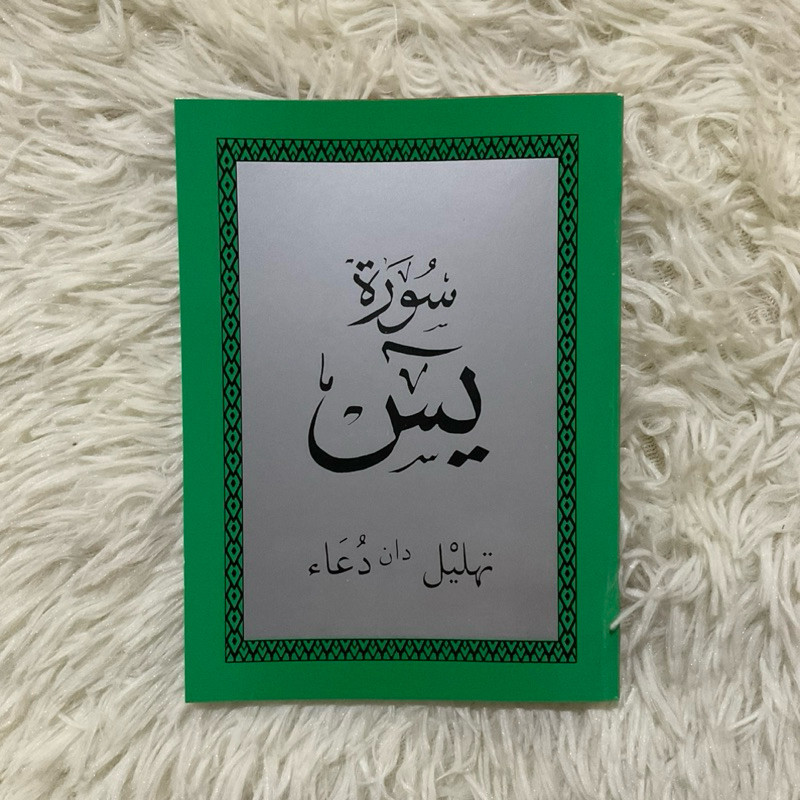 سُورَة
يٓسٓ
تهليْل دان دُعَاء